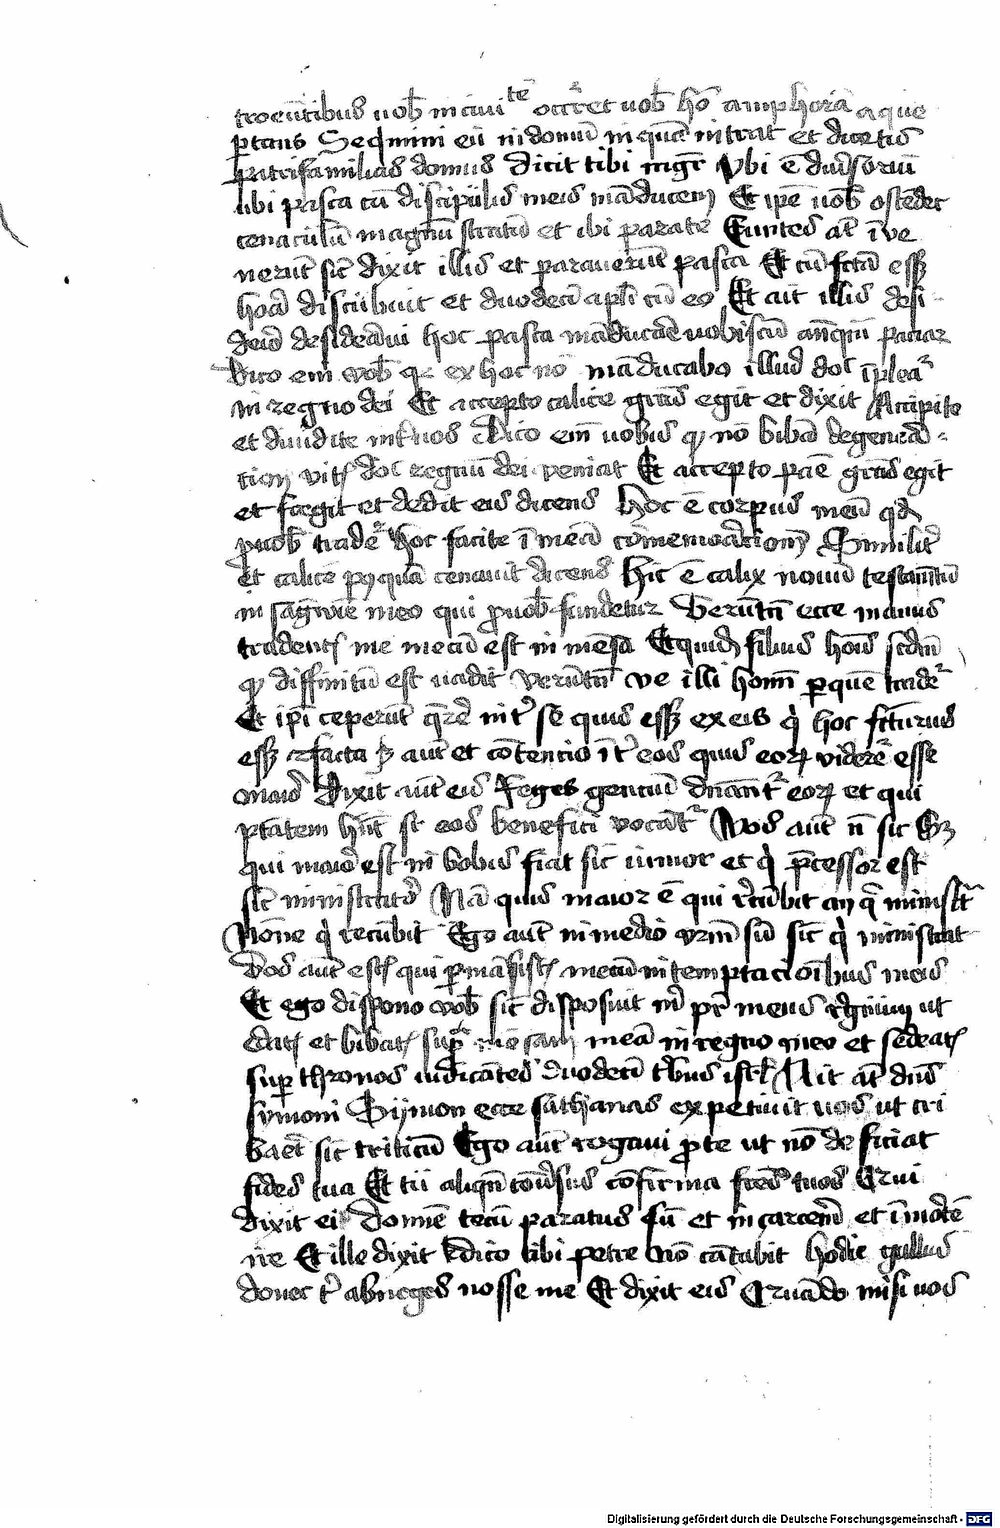 troeuntibus uob̄ in ciuitē occr̄ret uob̄ hō amphorā aque
portans Seqmini eū in domū in quā intrat et dicetis
patrifamilias domus Dicit tibi mgr̄ Vbi ē diu̾soriū
ubi pasca cū discipulis meis māducem Et ipē uob̄ ostēdet
cenaculū magnū stratū et ibi parate Euntes at̄ īue
nerūt sic̄ dixit illis et parauerūt pasca Et cū fctā ess
hora discubuit et duodecī apl̄i cū eo Et ait illis desi
derio desideraui hoc pasca māducare uobiscū anq̄ȝ paciar
Dico em̄ vob̄ qꝛ ex hoc nō māducabo illud doc īpleat᷑
in regno dei Et accepto calice gr̄as egit et dixit Accipite
et diuidite int̾ uos Dico em̄ uobis qꝛ nō bibā de genera
tiōn vitis doc regnū dei veniat Et accepto pāe gr̄as egit
et fregit et dedit eis dicens Hoc ē corpus meū qd
pro uob̄ tradet᷑ hoc facite ī meā comemoracionem Similit̾
et calicē pꝯquā cenauit dicens Hic ē calix nouū testam̄tū
in sangwine meo qui pro uob̄ fundetur Verūtn̄ ecce manus
tradentis me mecū est in mēsa Et quidē filius hōis scdm̄
qꝛ diffinitū est uadit Verūtn̄ ve illi homī per quē tradet᷑
Et ip̄i ceperūt q̄rere int̾ se quis ess ex eis qͥ hoc fc̄turus
ess facta ē aut̄ et cōtencio īt̾ eos quis eoꝝ videret᷑ esse
maior Dixit aut̄ eis Reges gentiū dn̄ant᷑ eoꝝ et qui
ptātem hn̄t sr̄ eos benefici vocāt᷑ Vos aut̄ n̄ sic Sȝ
qui maior est in vobis fiat sic̄ iunior et qͥ p̄cessor est
sic̄ ministrator Nā quis maior ē qui recūbit an qͥ ministrat
Nōne qͥ recūbit Ego aut̄ in medio vrm̄ sū sic̄ qͥ ministrat
Vos aut̄ estis qui permāsistis mecū in temptacioībus meis
Et ego dispono vob̄ sic̄ disposuit m̄ pr̄ meus regnum ut
edatis et bibatis supra mēsam meā in regno meo et sedeatis
super thronos iudicātes duodecī tbus isrl̄ Ait at̄ dn̄s
symoni Symon ecce sathanas expetiuit uos ut cri
baret sic̄ triticū Ego aut̄ rogaui pro te ut nō deficiat
fides tua Et tu aliqn̄ cōu̾sus cōfirma fr̄es tuos Qui
dixit ei Domīe tecū paratus sū et in carcerē et ī mortē
ire Et ille dixit Dico tibi petre nō cātabit hodie gallus
donec t̾ abneges nosse me Et dixit eis Quādo misi uos
Digitalisierung gefördert durch die Deutsche Forschungsgemeinschaft - DFG